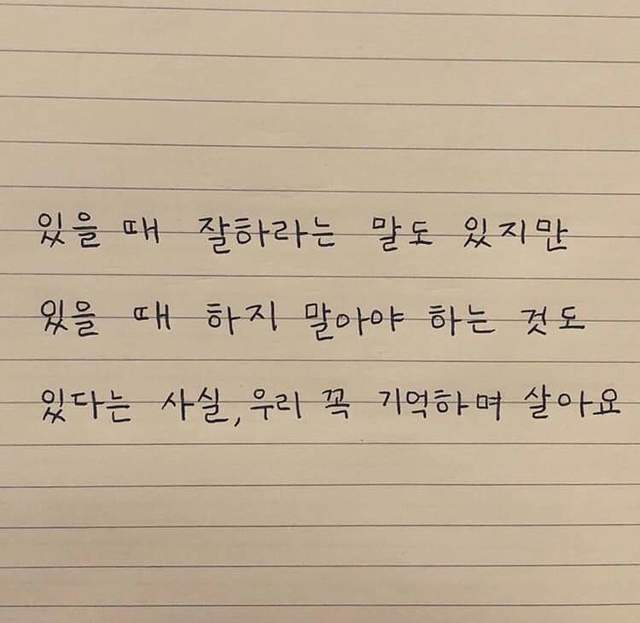 있을 때 잘하라는 말도 있지만
있을 때 하지 말아야 하는 것도
있다는 사실, 우리 꼭 기억하며 살아요